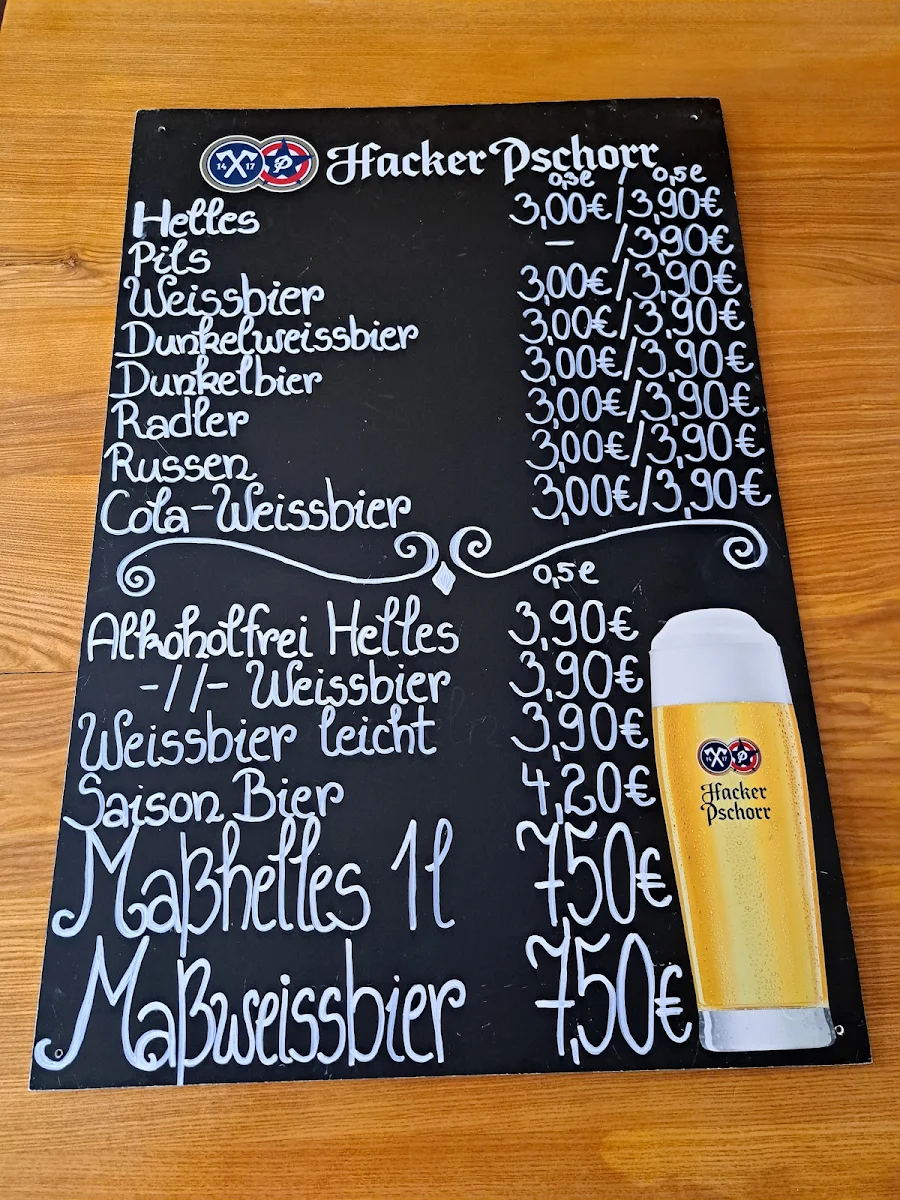 14 17 P Hacker Pschorr
0,3l / 0,5l
Helles 3,00€/3,90€
Pils – /3,90€
Weissbier 3,00€/3,90€
Dunkelweissbier 3,00€/3,90€
Dunkelbier 3,00€/3,90€
Radler 3,00€/3,90€
Russen 3,00€/3,90€
Cola-Weissbier 3,00€/3,90€
0,5l
Alkoholfrei Helles 3,90€
-//- Weissbier 3,90€
Weissbier leicht 3,90€
Saison Bier 4,20€
Maßhelles 1l 7,50€
Maßweissbier 7,50€
14 17 P
Hacker
Pschorr